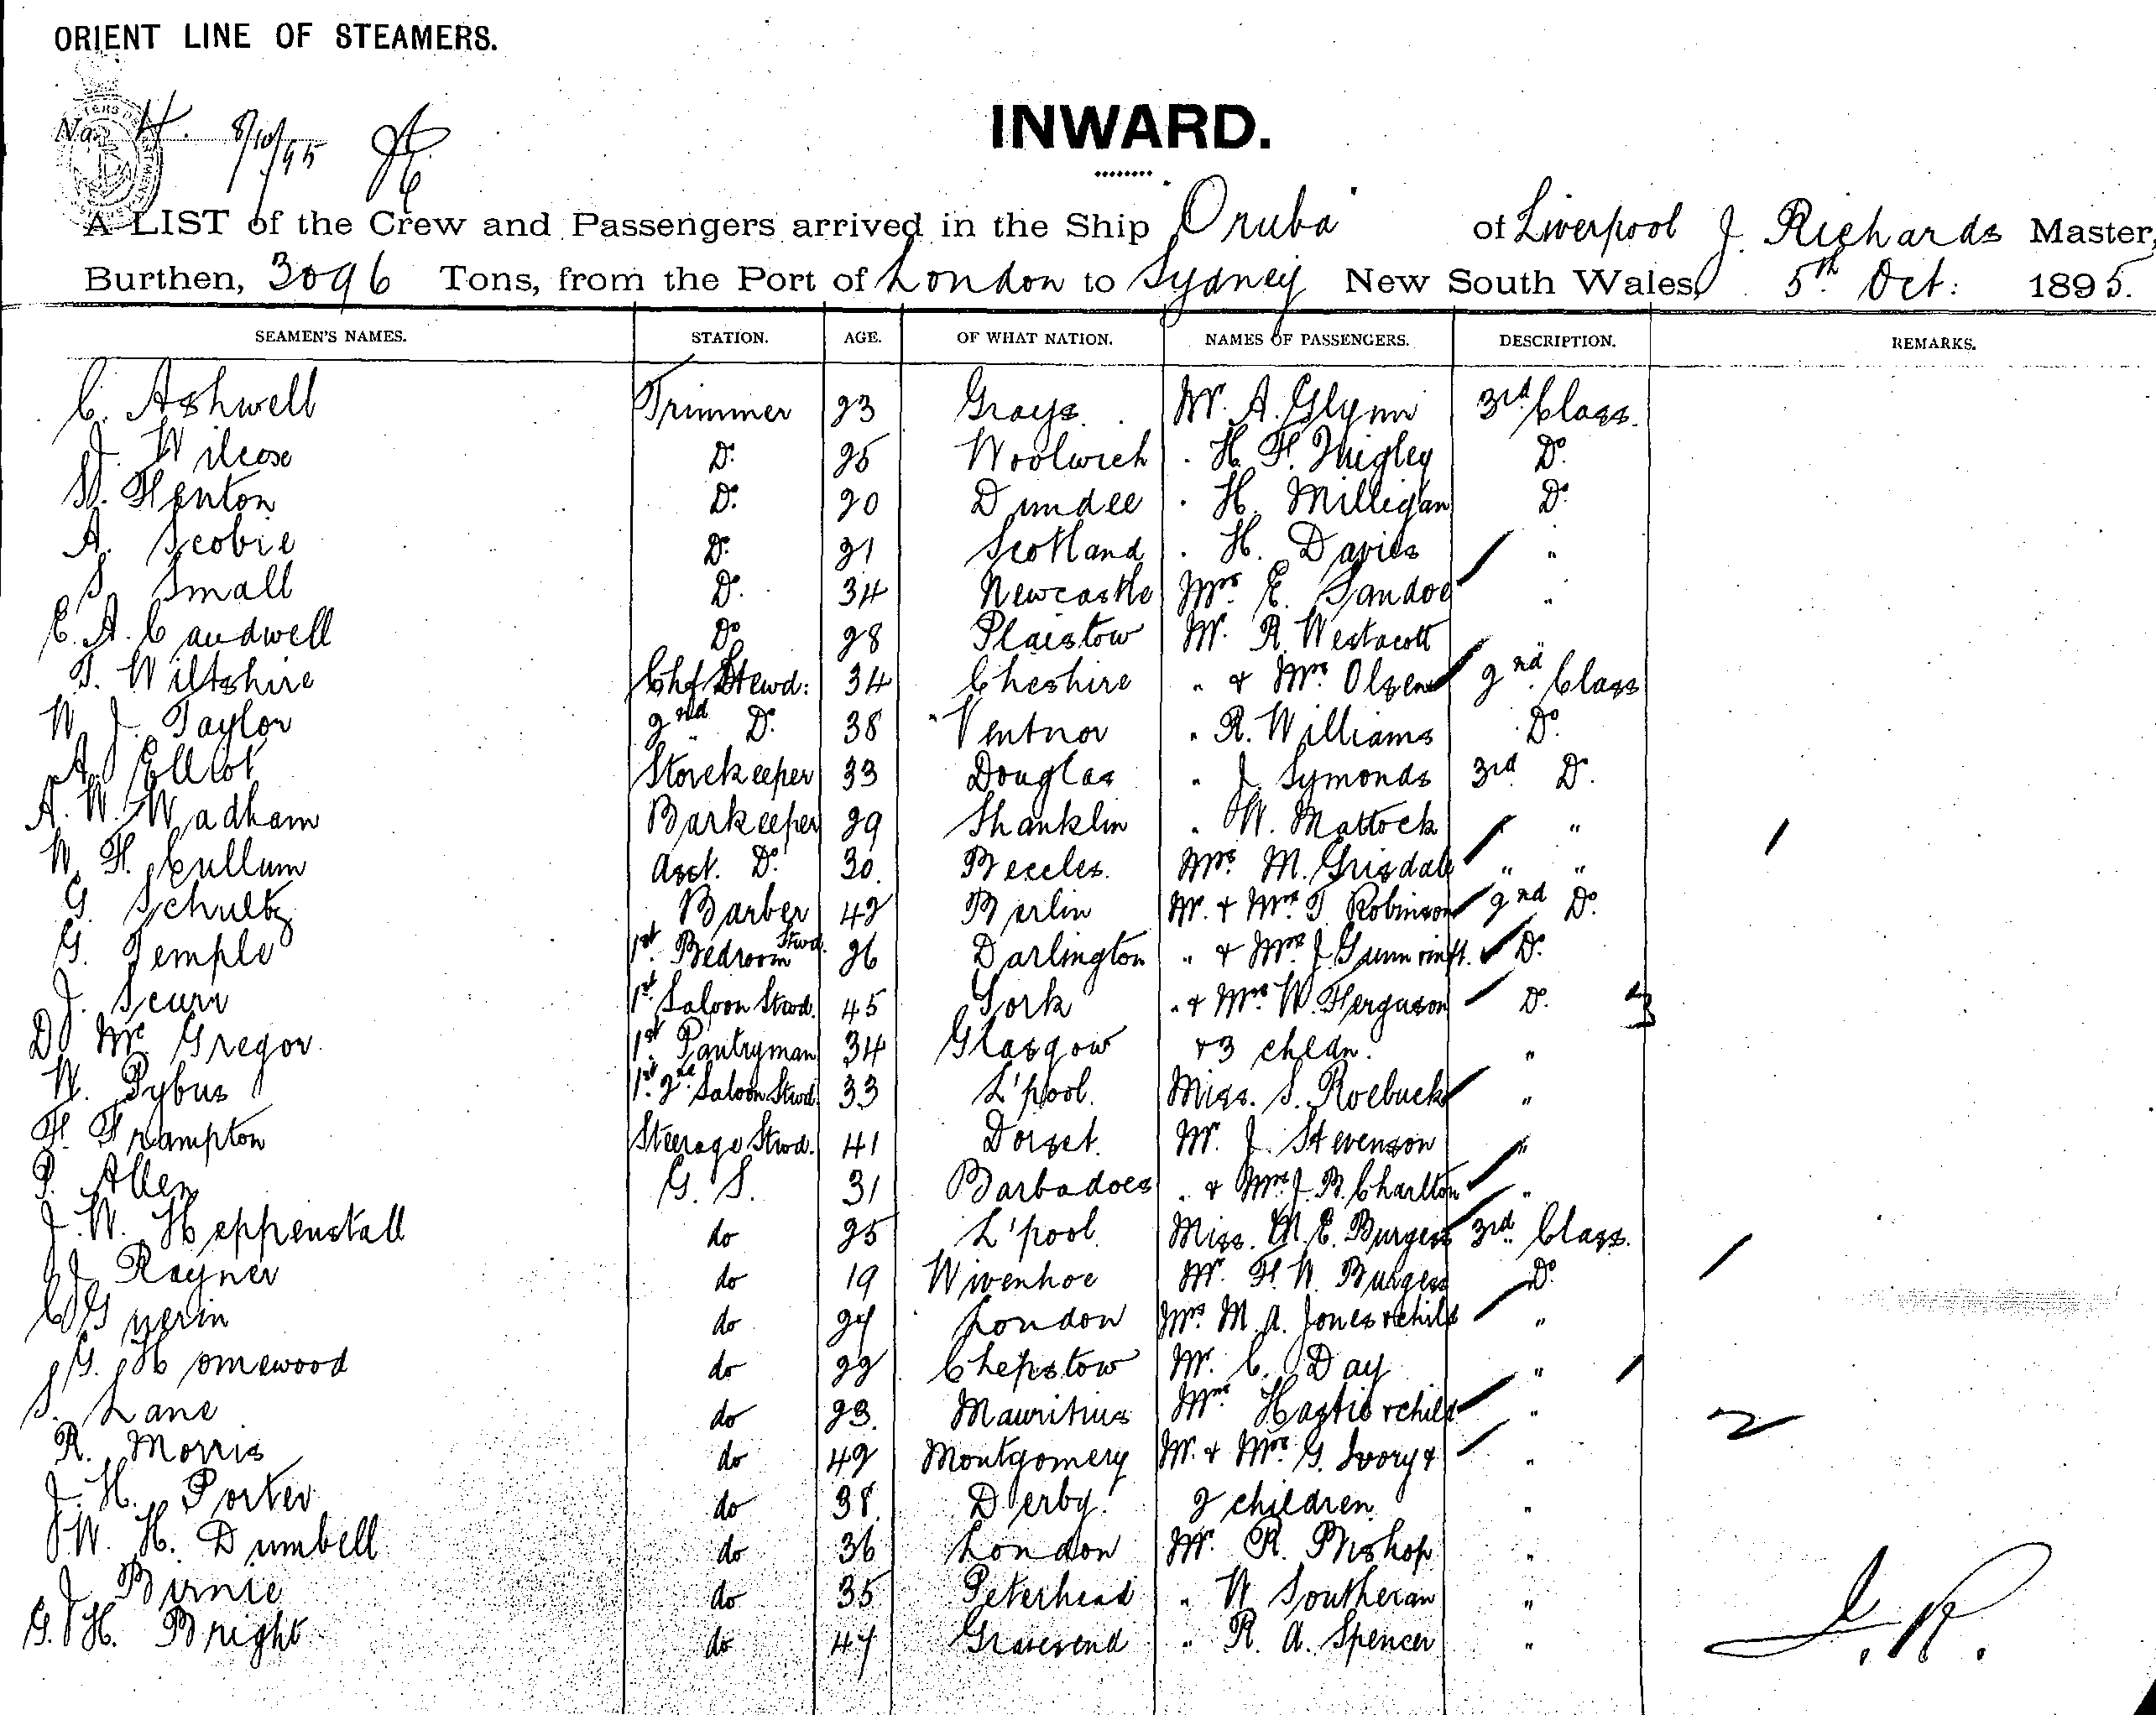 ORIENT LINE OF STEAMERS.
No. 4. 8/10/95
INWARD.
A LIST of the Crew and Passengers arrived in the Ship Oruba of Liverpool J. Richards Master,
Burthen, 3096 Tons, from the Port of London to Sydney New South Wales, 5th Oct: 1895.
SEAMEN'S NAMES. STATION. AGE. OF WHAT NATION. NAMES OF PASSENGERS. DESCRIPTION. REMARKS.
C. Ashwell Trimmer 23 Grays. Mr. A. Glynn 3rd Class.
J. Wilcox Do. 25 Woolwich . H. F. Do.
W. Fenton Do. 20 Dundee . H. Milligan Do.
A. Scobie Do. 21 Scotland . H. Davies "
S. Small Do. 34 Newcastle Mrs. E. Sandoe "
E. A. Caudwell Do 28 Plaistow Mr. R. Westacott "
T. Wiltshire Chf Stewd: 34 Cheshire " & Mrs. Olsen 2nd Class
W. J. Taylor 2nd Do. 38 Ventnor " R. Williams Do.
A. Elliot Storekeeper 33 Douglas " J. Symonds 3rd Do.
A. W. Wadham Barkeeper 29 Shanklin " W. Mattock " 1
W. F. Cullum Asst. Do. 30. Beccles. Mrs. M. Grisdale " "
G. Schultz Barber 42 Berlin Mr. & Mrs. T. Robinson 2nd Do.
G. Temple 1st Bedroom Stwd. 26 Darlington " & Mrs. J. Do.
J. Scurr 1st Saloon Stwd. 45 York " & Mrs. W. Ferguson Do. 3
D. McGregor 1st Pantryman 34 Glasgow & 3 chldn. "
W. Pybus 1st 2nd Saloon Stwd. 33 L'pool. Miss. S. Roebuck "
F. Frampton Steerage Stwd. 41 Dorset. Mr. J. Stevenson "
P. Allen G. S. 31 Barbadoes " & Mrs. J. B. Charlton "
J. W. Heppenstall do 25 L'pool. Miss. M. E. Burgess 3rd Class.
J. Rayner do 19 Wivenhoe Mr. F. W. Burgess Do. 1
C. Guerin do 24 London Mrs. M. A. Jones & child "
G. Homewood do 22 Chepstow Mr. C. Day " 1
S. Lane do 23. Mauritius Mrs. Hastie & child " 2
R. Morris do 42 Montgomery Mr. & Mrs. G. Ivory & "
J. H. Porter do 38. Derby. 2 children "
W. H. Dumbell do 36 London Mr. R. Bishop "
J. Birnie do 35 Peterhead " W. Southeran "
G. H. Bright do 47 Gravesend " R. A. Spencer "
J. R.